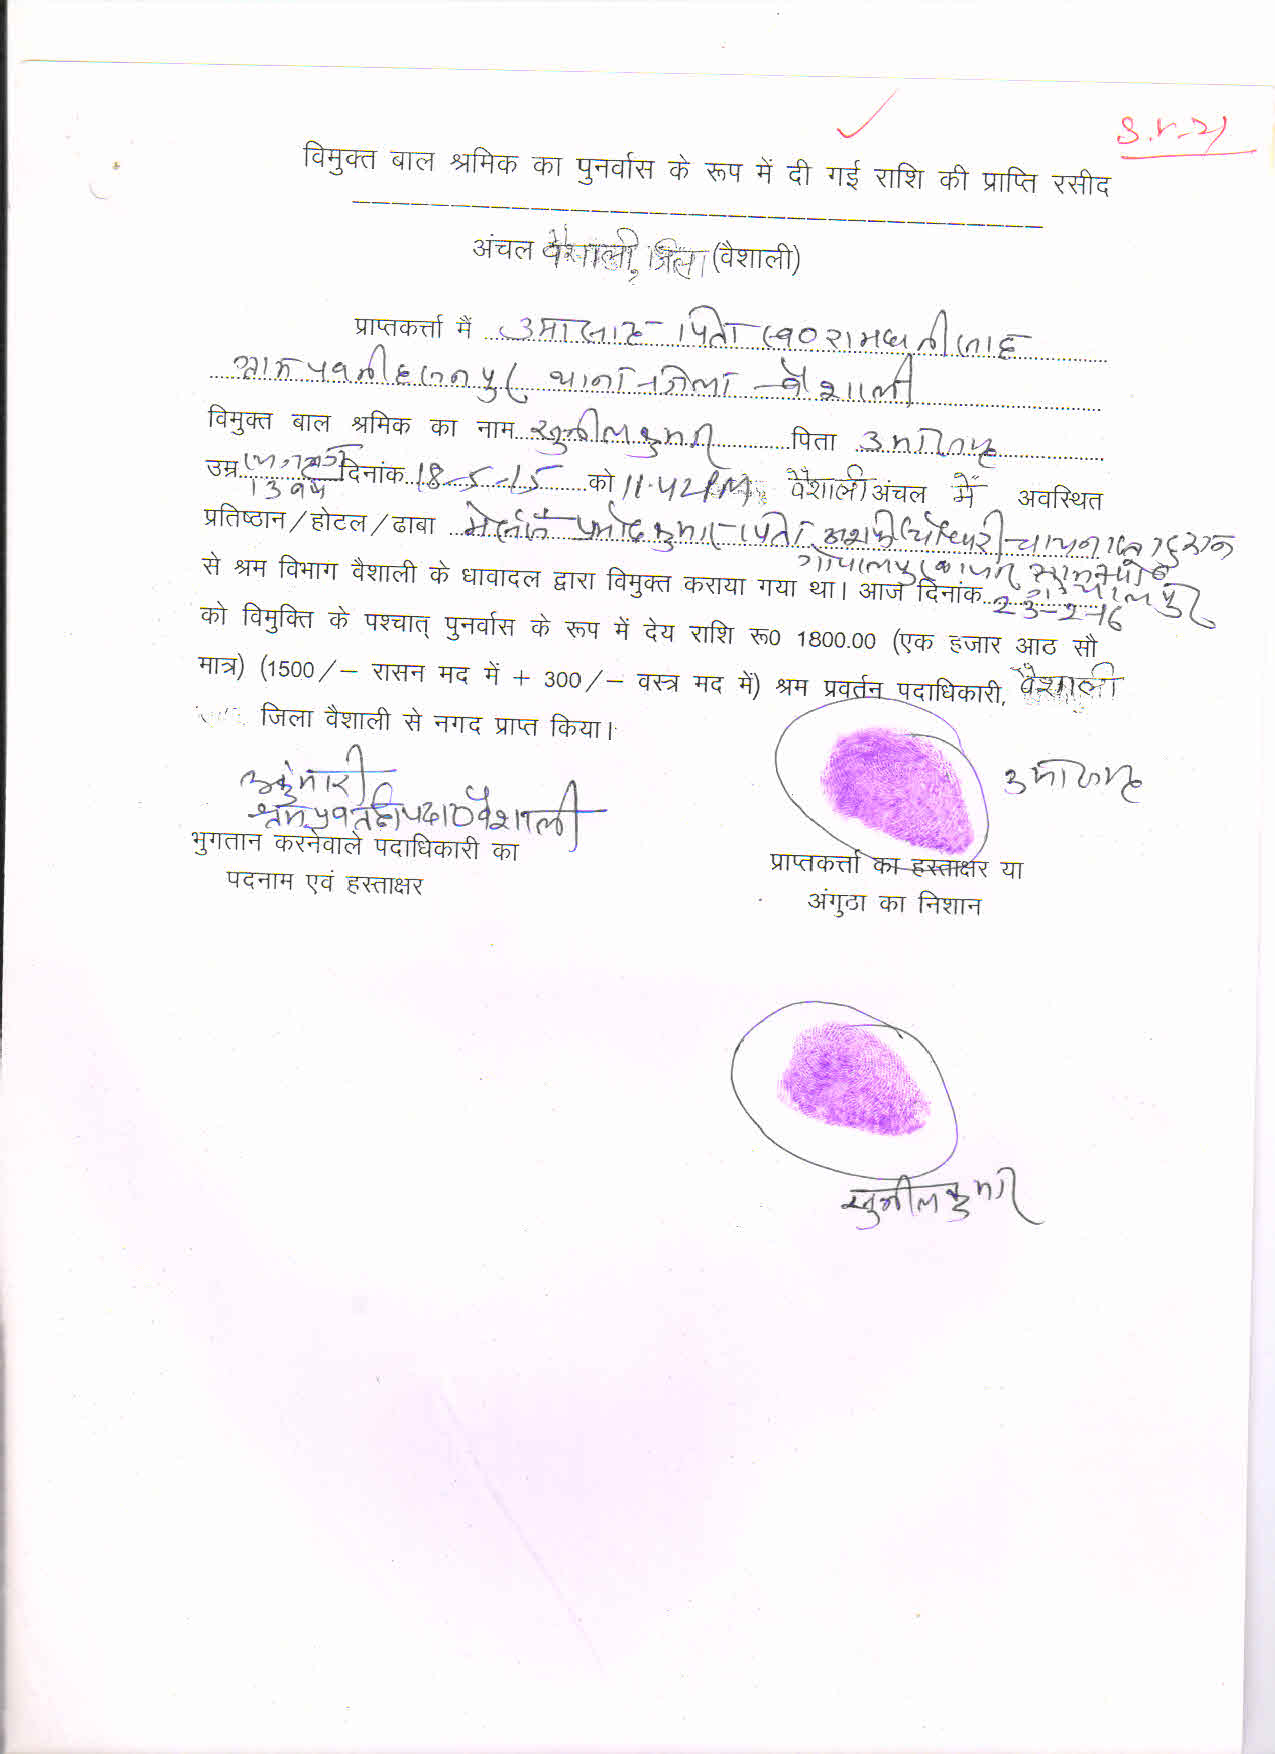 S.r-21
विमुक्त बाल श्रमिक का पुनर्वास के रूप में दी गई राशि की प्राप्ति रसीद
अंचल वैशाली, जिला (वैशाली)
प्राप्तकर्त्ता मैं उमा साह पिता स्व0 रामधनी साह
थाना जिला वैशाली
विमुक्त बाल श्रमिक का नाम सुनील कुमार पिता उमा साह
उम्र 13 वर्ष दिनांक 18-5-15 को 11.42 PM वैशाली अंचल में अवस्थित
प्रतिष्ठान/होटल/ढाबा मेसर्स प्रमोद कुमार पिता
गोपालपुर
से श्रम विभाग वैशाली के धावादल द्वारा विमुक्त कराया गया था। आज दिनांक 23-2-16
को विमुक्ति के पश्चात् पुनर्वास के रूप में देय राशि रू0 1800.00 (एक हजार आठ सौ
मात्र) (1500/– रासन मद में + 300/– वस्त्र मद में) श्रम प्रवर्तन पदाधिकारी, वैशाली
जिला वैशाली से नगद प्राप्त किया।
उमा साह
वैशाली
भुगतान करनेवाले पदाधिकारी का
पदनाम एवं हस्ताक्षर
प्राप्तकर्त्ता का हस्ताक्षर या
अंगुठा का निशान
सुनील कुमार